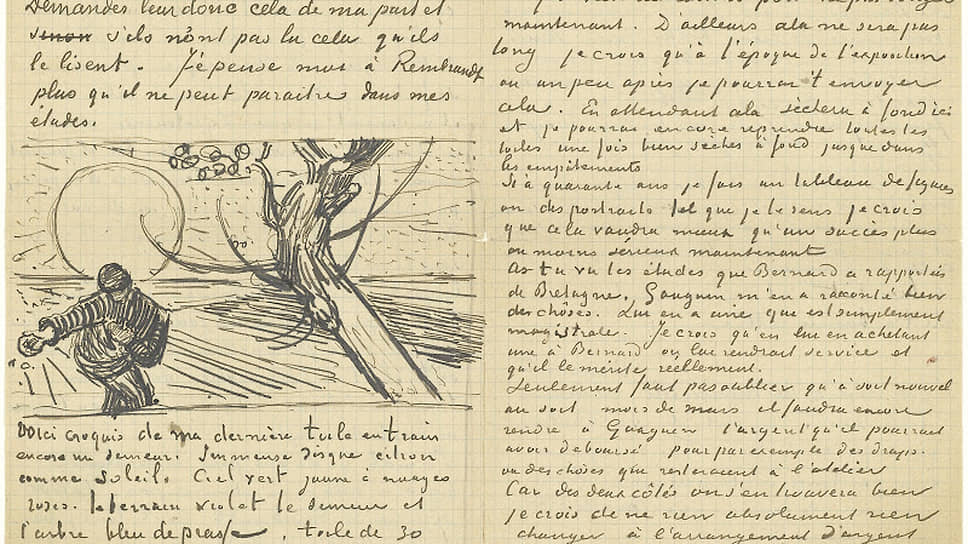 Demandes leur donc cela de ma part et
sinon s'ils n'ont pas lu cela qu'ils
le lisent. J'épense moi à Rembrandt
plus qu'il ne peut paraitre dans mes
études.
Voici croquis de ma dernière toile en train
encore un semeur. Immense disque citron
comme soleil. Ciel vert jaune à nuages
roses. le terrain violet le semeur et
l'arbre bleu de prusse. toile de 30
maintenant. D'ailleurs cela ne sera pas
long je crois qu'à l'époque de l'exposition
ou un peu après je pourrai t'envoyer
cela. En attendant cela sèchera à fond ici
et je pourrai encore reprendre toutes les
toiles une fois bien sèches à fond jusque dans
les empâtements
Si à quarante ans je fais un tableau de figures
ou des portraits tel que je le sens je crois
que cela vaudra mieux qu'un succès plus
ou moins sérieux maintenant
As tu vu les études que Bernard a rapportées
de Bretagne. Gauguin m'en a raconté bien
des choses. Lui en a une que est simplement
magistrale. Je crois qu'en lui en achetant
une à Bernard on lui rendrait service et
qu'il le mérite réellement.
Seulement faut pas oublier qu'à soit nouvel
an soit mois de mars il faudra encore
rendre à Gauguin l'argent qu'il pourrait
avoir deboursé pour par exemple des draps.
ou des choses que resteraient à l'atelier
Car des deux côtés on s'en trouvera bien
je crois de ne rien absolument rien
changer à l'arrangement d'argent